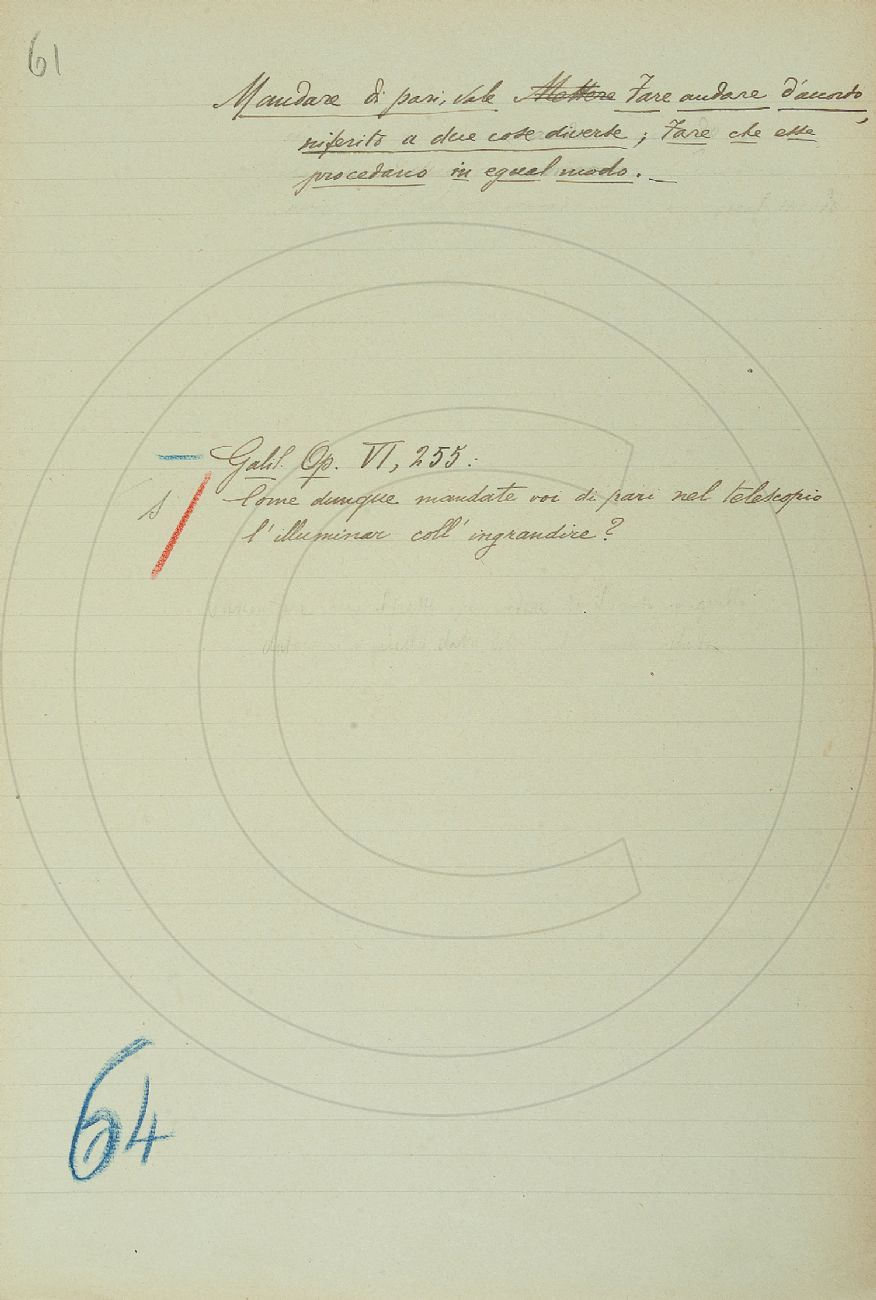 61
Mandare di pari, vale Mettere Fare andare d'accordo,
riferito a due cose diverse; Fare che esse
procedano in egual modo. —
Galil. Op. VI, 255:
S Come dunque mandate voi di pari nel telescopio
l'illuminar coll'ingrandire?
64